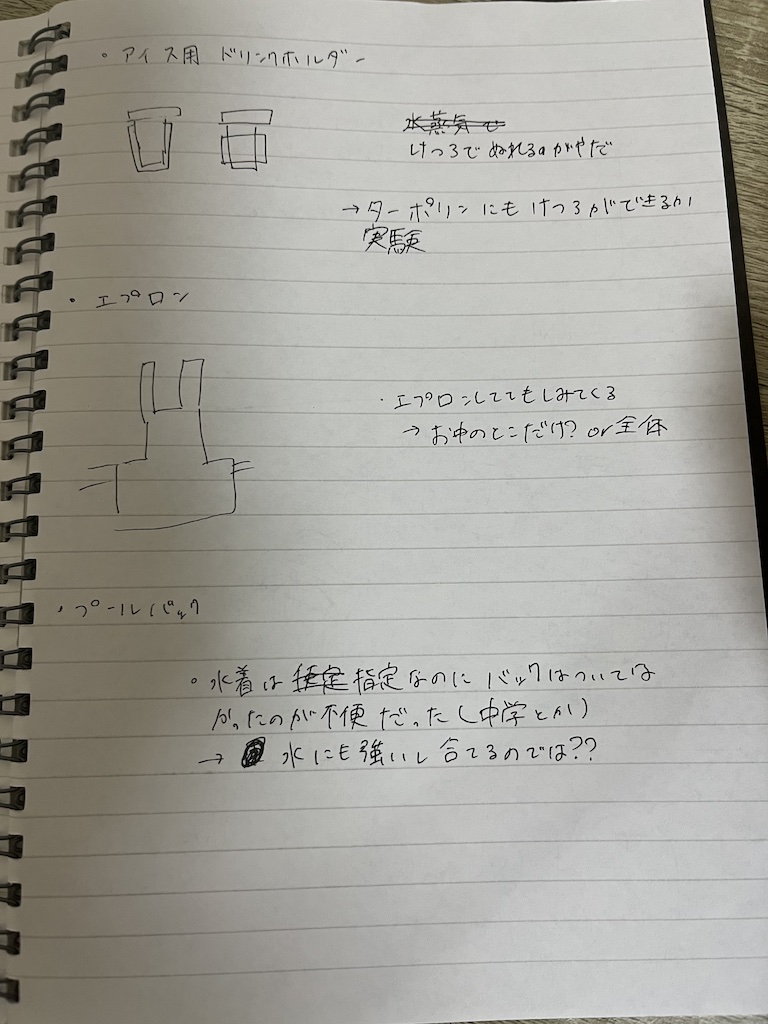 ・アイス用 ドリンクホルダー
けつろで ぬれるのがやだ
→ ターポリンにも けつろができるか
実験
・エプロン
・エプロンしててもしみてくる
→ お中のとこだけ? or 全体
・プールバック
・水着は 指定なのに バックはついては
かったのが不便だった(中学とか)
→ 水にも強いし 合てるのでは??